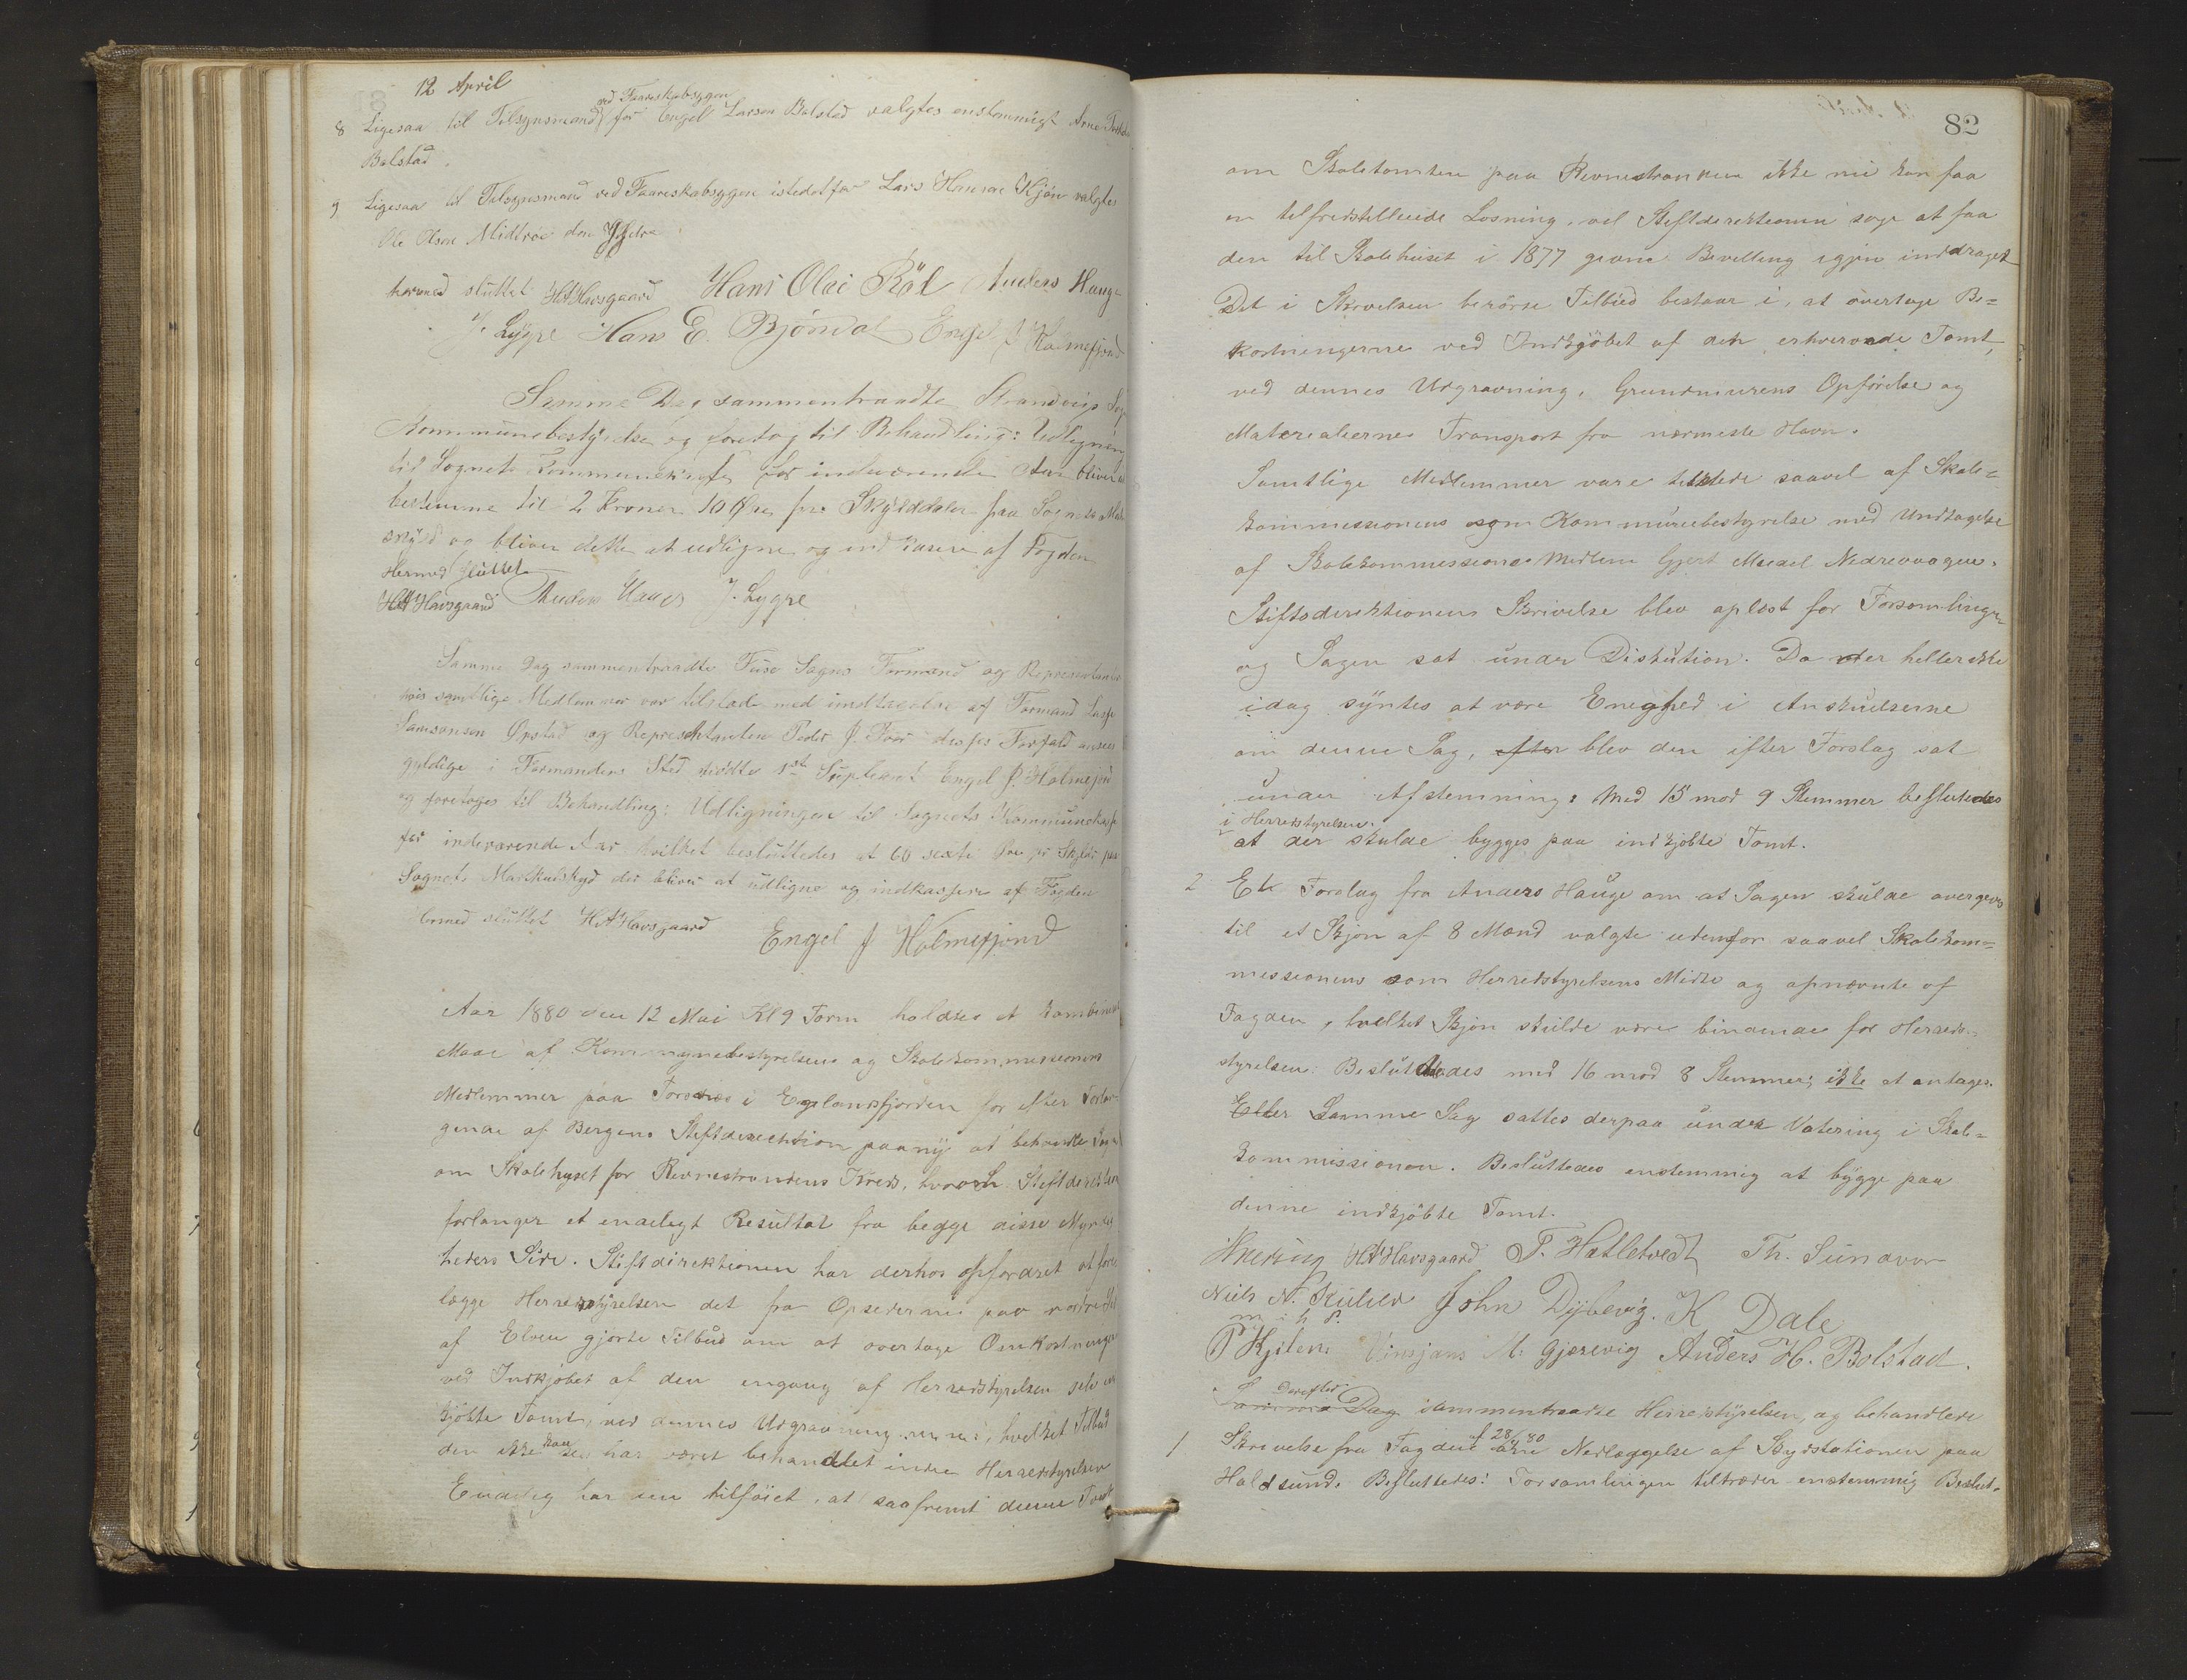 12 April
ved Faareskabsygen
8 Ligesaa til Tilsynsmand for Engel Larsen Bolstad valgtes enstemmigt Arne
Bolstad.
9 Ligesaa til Tilsynsmand ved Faareskabsygen istedetfor Lars Hansen valgtes
Ole Olsen Midtrøe
hermed sluttet HAHavsgaard Hans Olai Röl Anders Hauge
J. Lygre Hans E. Bjöndal Engel J Holmefjord
Samme Dag sammentraadte Strandvigs Sogns
Kommunebestyrelse og foretog til Behandling: Udligning
til Sognets Kommunekasse for indeværende Aar bliver at
bestemme til 2 Kroner 10 Øre pr. Skylddaler paa Sognets Matr
skyld og bliver dette at udligne og indkasere af Fogden
Hermed sluttet
HAHavsgaard Anders Hauge J. Lygre
Samme Dag sammentraadte Fuse Sogns Formænd og Repræsentanter
hvis samtlige Medlemmer var tilstæde med undtagelse af Formand Lasse
Samsonsen Opstad og Repræsentanten Peder J. disses Forfald ansees
gyldige i Formandens Sted mødte 1ste Supleant Engel J. Holmefjord
og foretoges til Behandling: Udligningen til Sognets Kommunekasse
for indeværende Aar hvilket besluttedes at 60 sexti Øre pr Skylds paa
Sognets Matrikulskyd der bliver at udligne og indkassere af Fogden
Hermed sluttet HAHavsgaard
Engel J Holmefjord
Aar 1880 den 12 Mai Kl 9 Form holdtes et kombineret
Møde af Kommunebestyrelsens og Skolekommissionens
Medlemmer paa i Eigelandsfjorden for efter Forlan-
gende af Bergens Stiftdirection paany at behandle Sagen
om Skolehuset for Revnestrandens Kreds, hvori Stiftdirektionen
forlanger et endeligt Resultat fra begge disse Myndig
heders Side. Stiftdirektionen har derhos opfordret at fore
lægge Herredstyrelsen det fra Opsiderne paa nordre Side
af Elven gjorte Tilbud om at overtage Omkostninger
ved Indkjøbet af den engang af Herredstyrelsen
kjøbte Tomt, ved dennes Udgravning m. m., hvilket Tilbud
den ikke kan sees har været behandlet i Herredstyrelsen
Endelig har den tilføiet, at saafremt denne Tvist
82
om Skoletomten paa Revnestranden ikke nu kan faa
en tilfredstillende Losning, vil Stiftdirektionen søge at faa
den til Skolehuset i 1877 givne Bevilling igjen inddraget
Det i Skrivelsen berörte Tilbud bestaar i, at overtage Be=
kostningerne ved Indkjöbet af den erhvervede Tomt,
ved dennes Udgravning, Grundmurens Opförelse og
Materialiernes Transport fra nærmeste Havn.
Samtlige Medlemmer vare tilstede saavel af Skole=
kommissionens som Kommunebestyrelse med Undtagelse
af Skolekommissions Medlem Gjert Nedrevaagen.
Stiftsdirektionens Skrivelse blev oplæst for Forsamlingen
og Sagen sat under Diskution. Da der heller ikke
idag syntes at være Enighed i Anskuelserne
om denne Sag, efter blev den efter Forslag sat
under Afstemning: Med 15 mod 9 Stemmer besluttedes
i Herredstyrelsen
at der skulde bygges paa indkjöbte Tomt.
2 Et Forslag fra Anders Hauge om at Sagen skulde overgives
til et Skjøn af 8 Mænd valgte udenfor saavel Skolekom=
missionens som Herredstyrelsens Midte og opnævnte af
Fogden, hvilket Skjøn skulde være bindende for Herreds-
styrelsen: Besluttedes med 16 mod 8 Stemmer, ikke at antages.
Efter Samme Sag sattes derpaa under Votering i Skole=
kommissionen. Besluttedes enstemmig at bygge paa
denne indkjöbte Tomt.
HAHavsgaard T. Hatletvedt Th. Sundvor
Niels N. John Dybevig. K Dale
m i h P.
M. Gjerevig Anders H. Bolstad.
Derefter
Samme Dag sammentraadte Herredstyrelsen, og behandlede
af 28/80
1. Skrivelse fra Fogden om Nedlæggelse af Skydsstationen paa
Holdsund. Besluttedes: Forsamlingen tiltræder enstemmig Beslut-